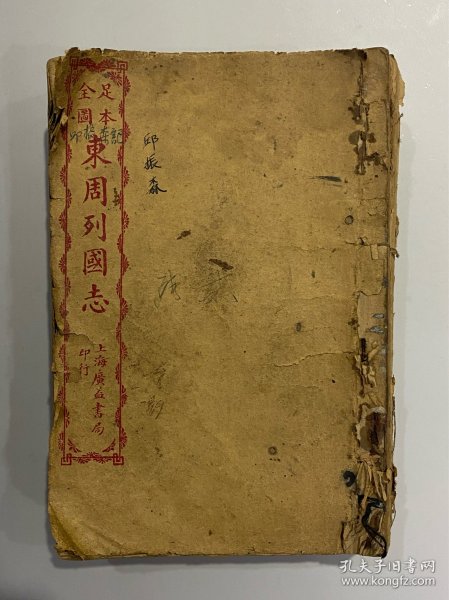 足本
全圖
東周列國志
上海廣益書局
印行
邱振森
孔夫子旧书网
www.kongfz.com